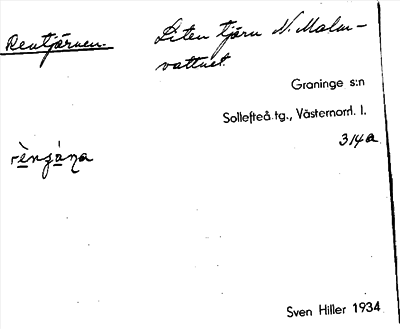 Rentjärnen.
Liten tjärn N. Malm-
vattnet.
Graninge s:n
Sollefteå tg., Västernorrl. l.
314a
Sven Hiller 1934